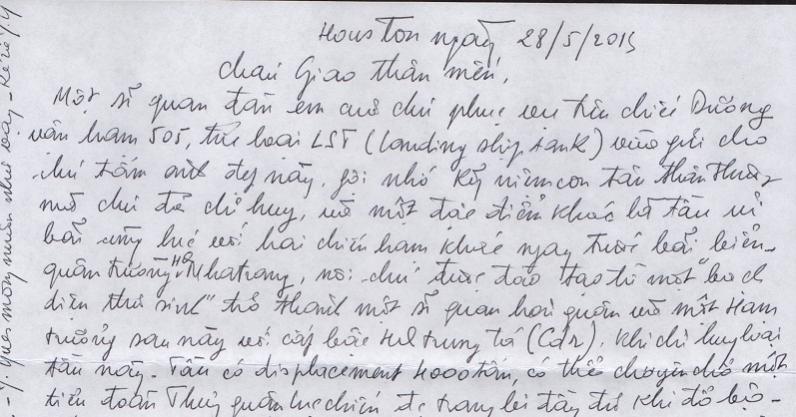 Houston ngày 28/5/2015
cháu Giao thân mến,
Một sĩ quan đàn em cuả chú phục vụ trên chiếc Dương
vân hạm 505, thứ loại LST (landing ship tank) vừa gửi cho
chú tấm ảnh đẹp này, gợi nhớ kỷ niệm con tàu thân thương
mà chú đã chỉ huy, và một đặc điểm khác là tàu ủi
bãi cùng lúc với hai chiến hạm khác ngay trước bãi biển
quân trường HQ Nhatrang, nơi chú được đào tạo từ một "bạch
diện thư sinh" trở thành một sĩ quan hải quân và một Hạm
trưởng sau này với cấp bậc HQ trung tá (Cdr), khi chỉ huy loại
tàu này. Tầu có displacement 4000 tấn, có thể chuyên chở một
tiểu đoàn Thuỷ quân lục chiến đc trang bị đầy đủ khi đổ bộ -